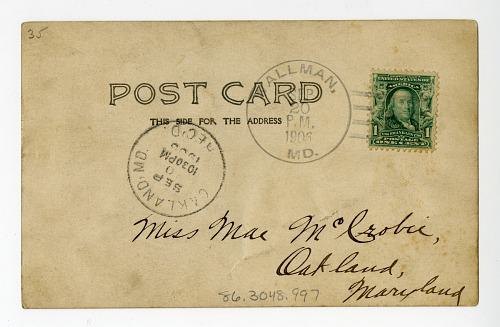 35
POST CARD
THIS SIDE FOR THE ADDRESS
ALLMAN,
20
P.M.
1906
MD.
UNITED STATES OF
AMERICA
1 1
POSTAGE
ONE CENT
OAKLAND, MD.
REC'D.
SEP
1030PM
Miss Mae McCrobie,
Oakland,
Maryland
86.3048.997